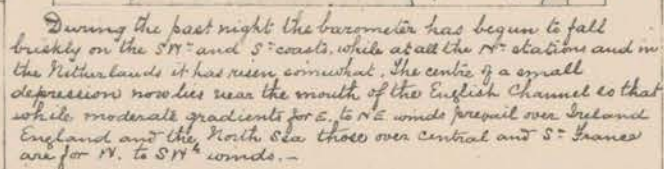 During the past night the barometer has begun to fall
briskly on the SWn and Sn coasts, while at all the Nn stations and in
the Netherlands it has risen somewhat. The centre of a small
depression now lies near the mouth of the English Channel so that
while moderate gradients for E. to NE winds prevail over Ireland
England and the North Sea those over central and Sn France
are for W. to SWly winds. -